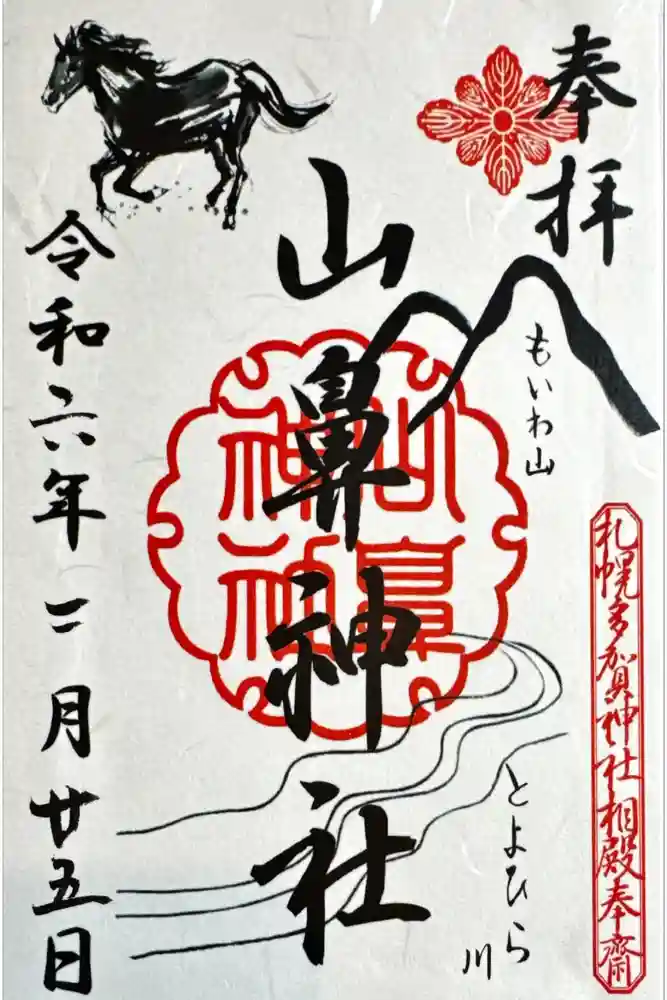 奉拝
もいわ山
札幌多加賀神社相殿奉齋
山鼻神社
山鼻
神社
とよひら川
令和六年二月廿五日